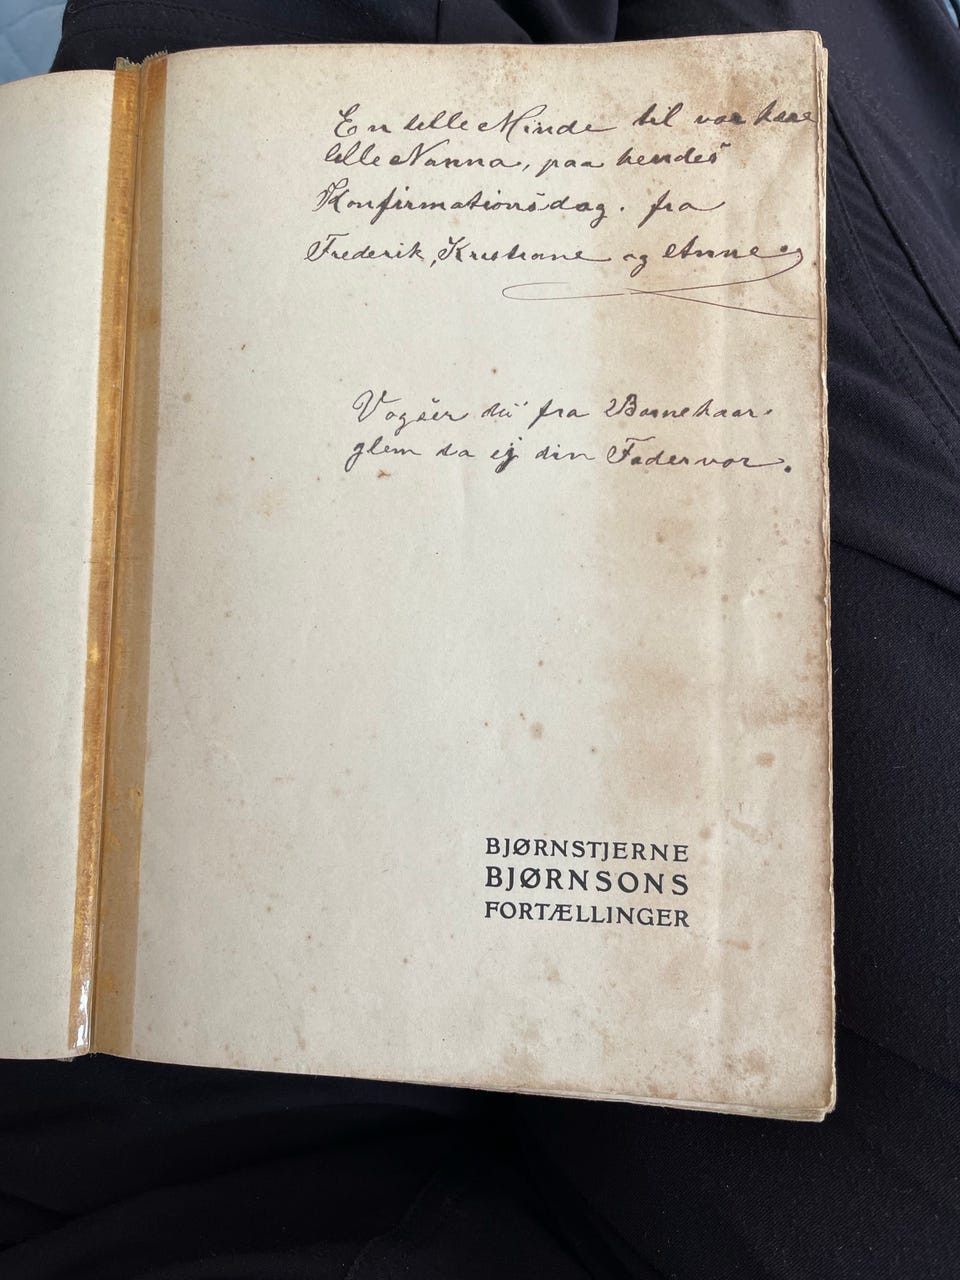 En lille Minde til vor kære
lille Nanna, paa hendes
Konfirmationsdag. fra
Frederik, Kristiane og Anne
Vogser du fra Barnekaar.
glem da ej din Fadervor.
BJØRNSTJERNE
BJØRNSONS
FORTÆLLINGER